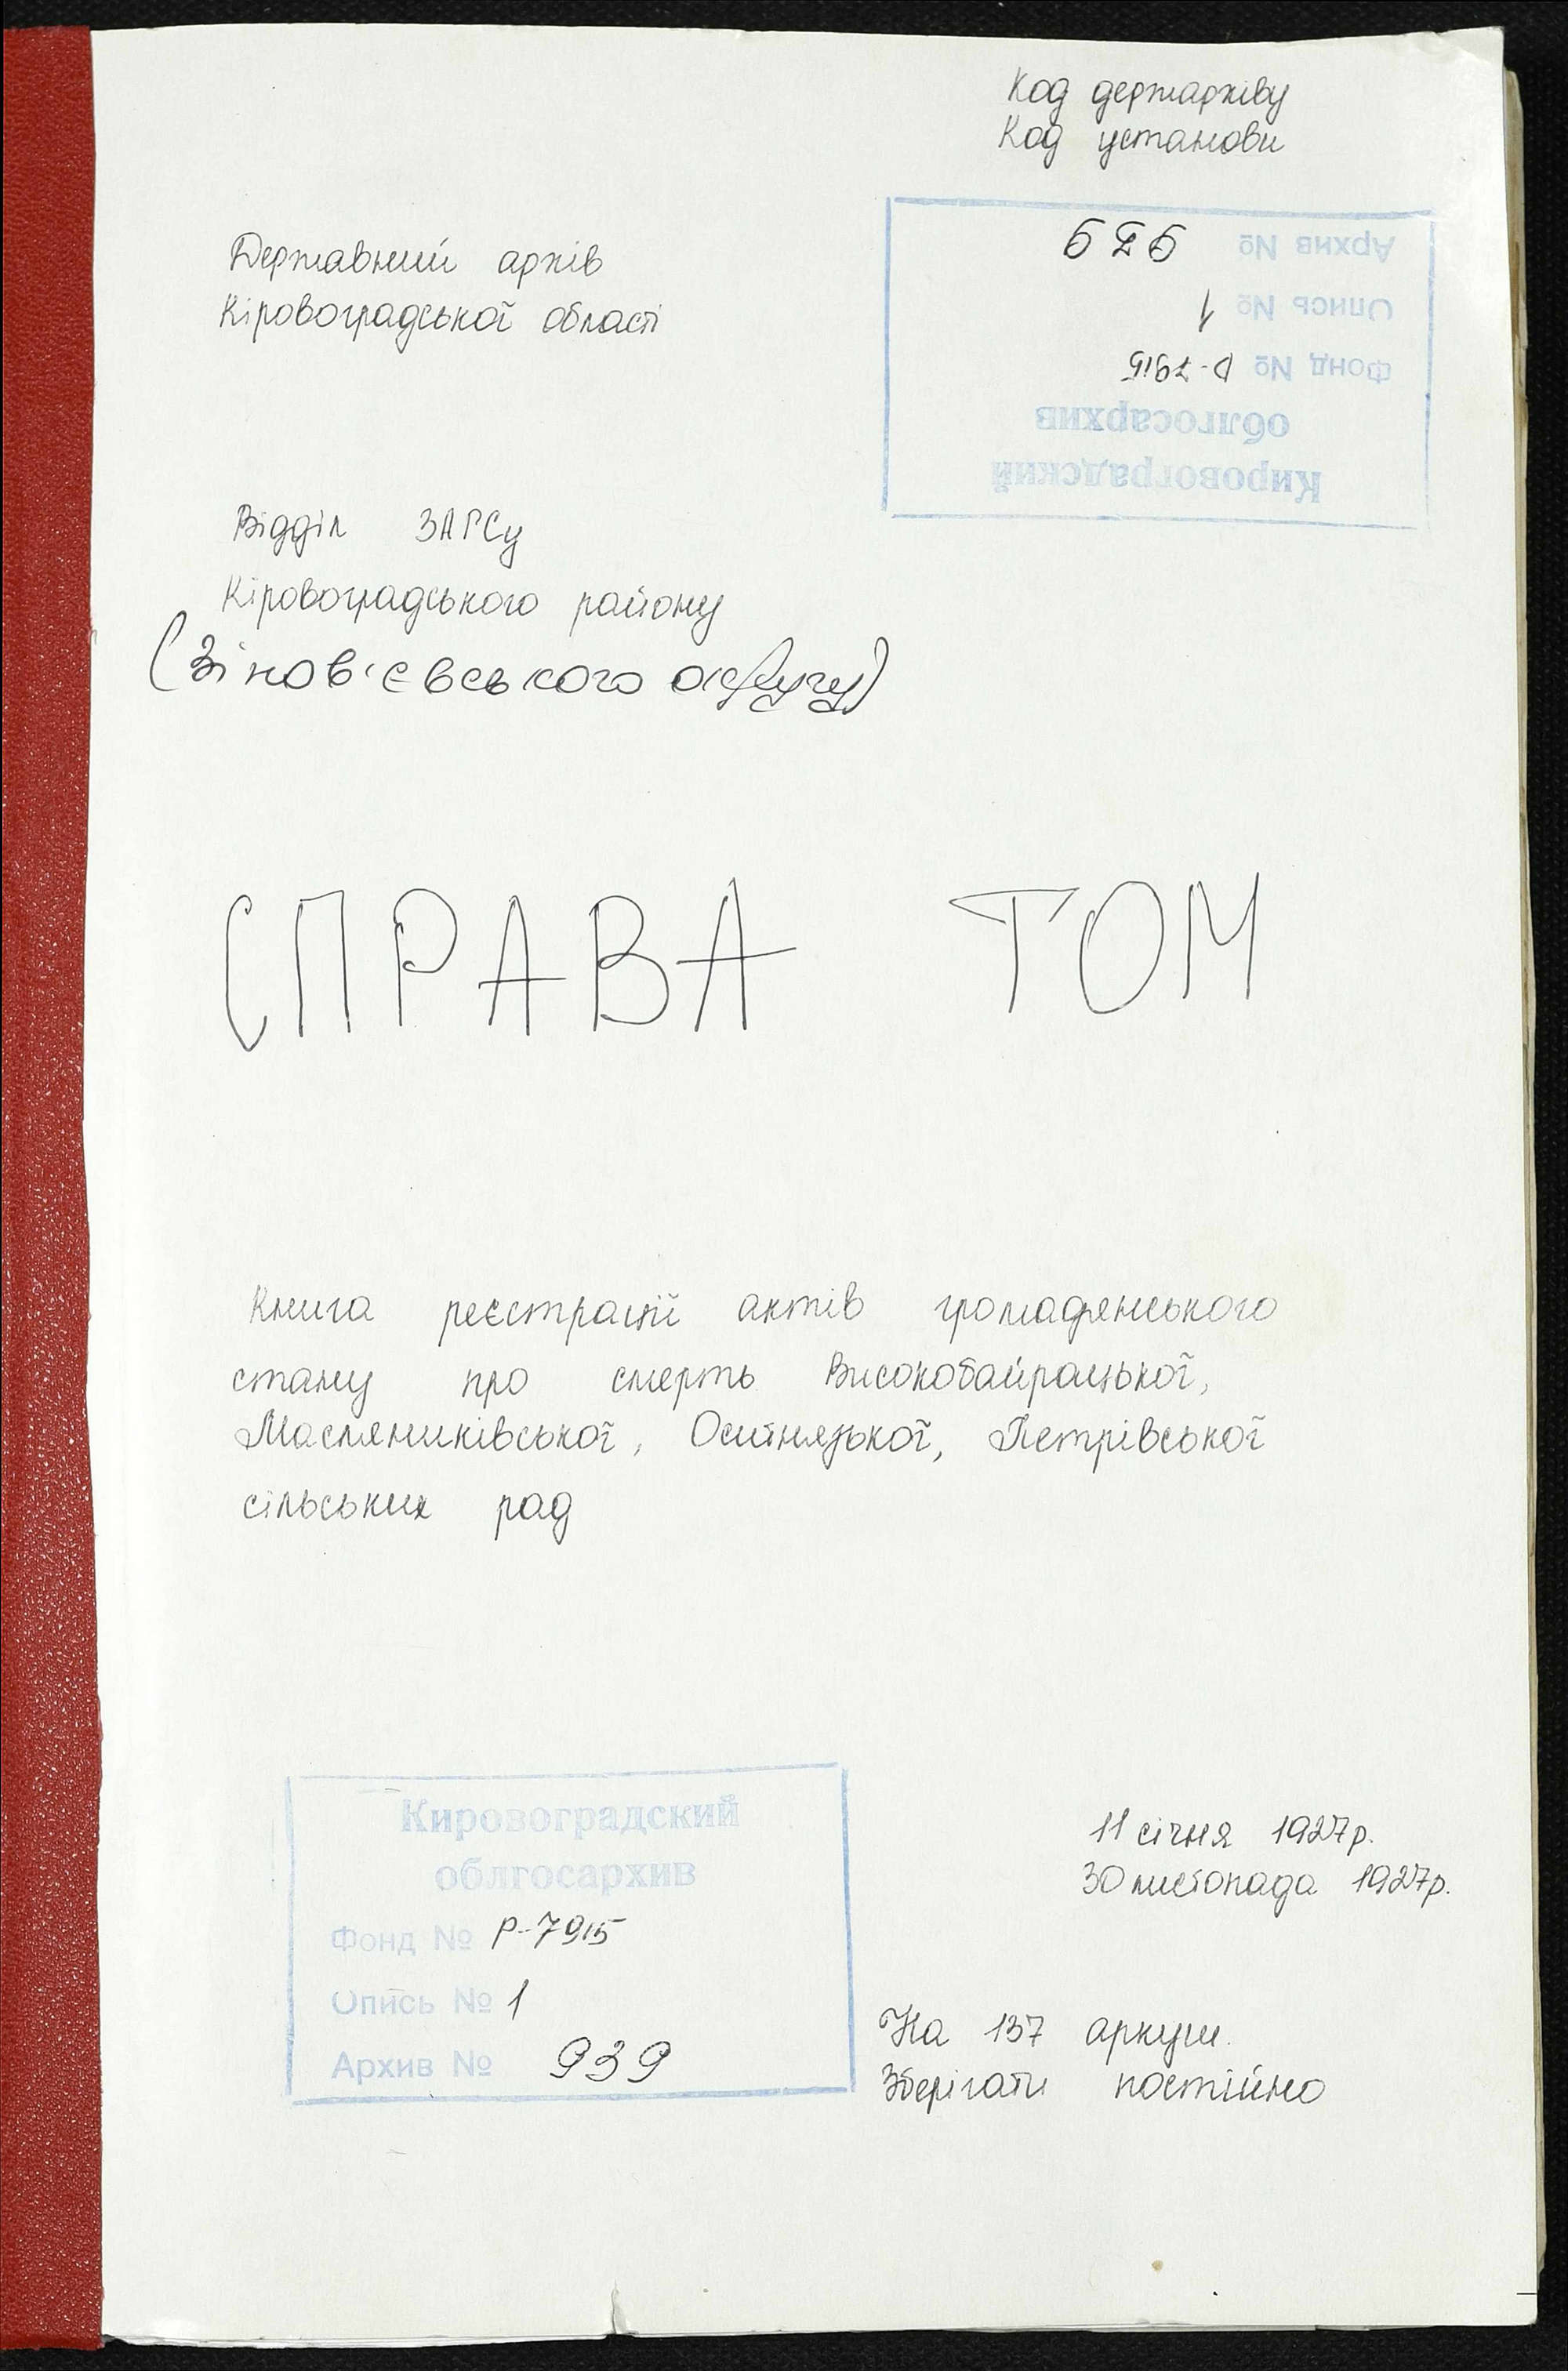 Код держархіву
Код установи
Державний архів
Кіровоградської області
Кировоградский
облгосархив
Фонд № Р-7915
Опись № 1
Архив № 939
Відділ ЗАГСу
Кіровоградського району
(Зінов'євського округу)
СПРАВА ТОМ
Книга реєстрації актів громадянського
стану про смерть Високобайрацької,
Масляниківської, Оситнязької, Петрівської
сільських рад
Кировоградский
облгосархив
Фонд № Р-7915
Опись № 1
Архив № 939
11 січня 1927р.
30 листопада 1927р.
На 137 аркуш.
Зберігати постійно